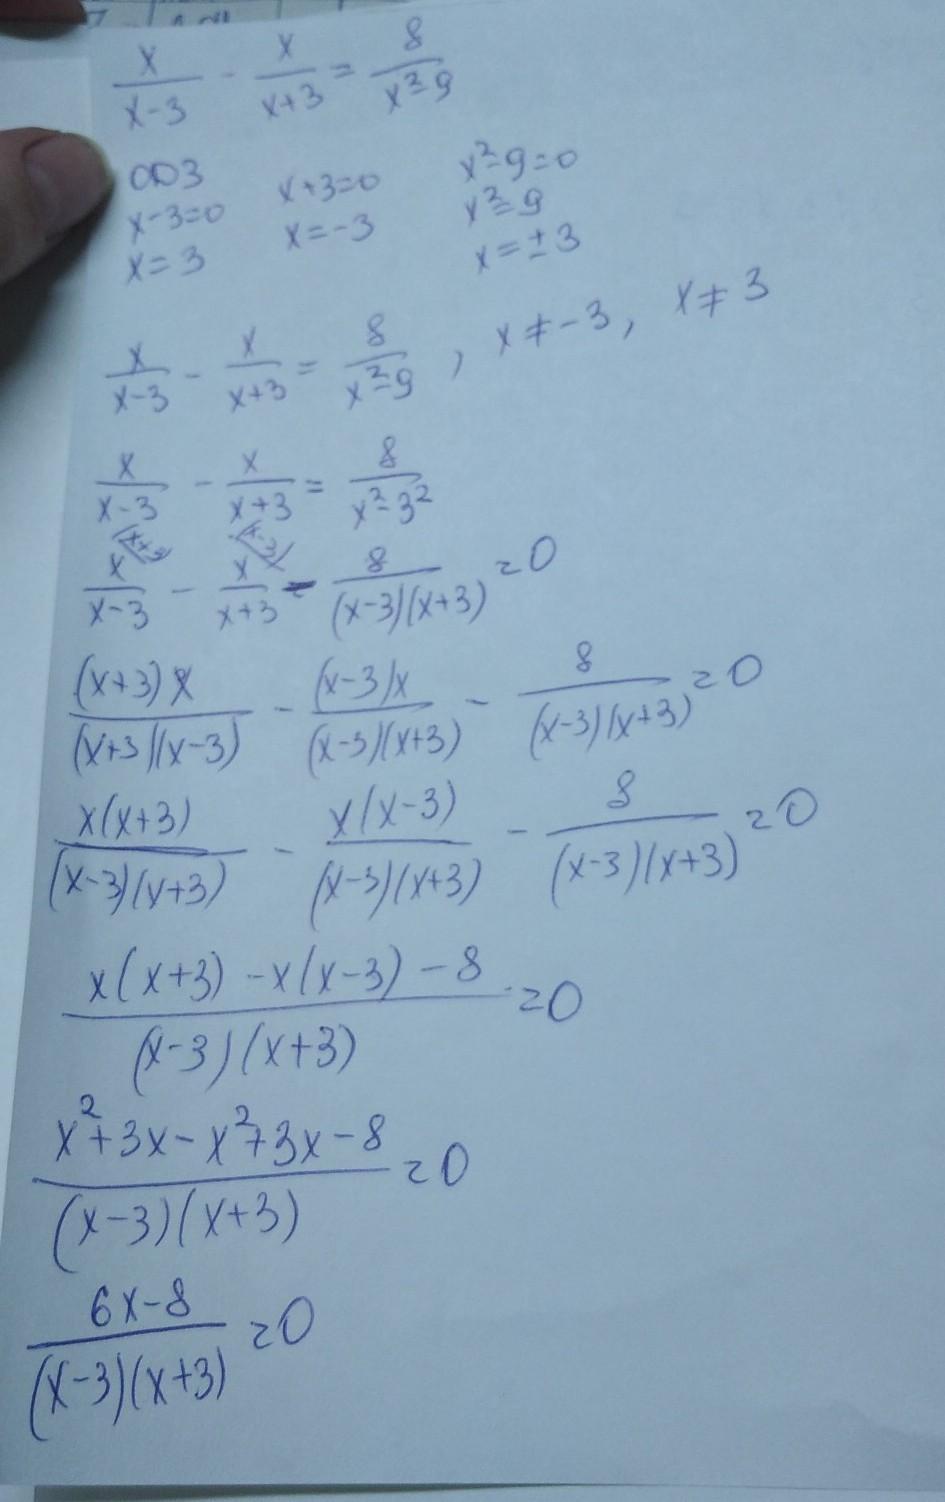 x/(x-3) - x/(x+3) = 8/(x²-9)
ОДЗ
x-3=0 x+3=0 x²-9=0
x=3 x=-3 x²=9
x=±3
x/(x-3) - x/(x+3) = 8/(x²-9) , x≠-3, x≠3
x/(x-3) - x/(x+3) = 8/(x²-3²)
x/(x-3) - x/(x+3) - 8/((x-3)(x+3)) =0
(x+3)x/((x+3)(x-3)) - (x-3)x/((x-3)(x+3)) - 8/((x-3)(x+3)) =0
x(x+3)/((x-3)(x+3)) - x(x-3)/((x-3)(x+3)) - 8/((x-3)(x+3)) =0
(x(x+3) -x(x-3) -8)/((x-3)(x+3)) =0
(x²+3x-x²+3x-8)/((x-3)(x+3)) =0
(6x-8)/((x-3)(x+3)) =0